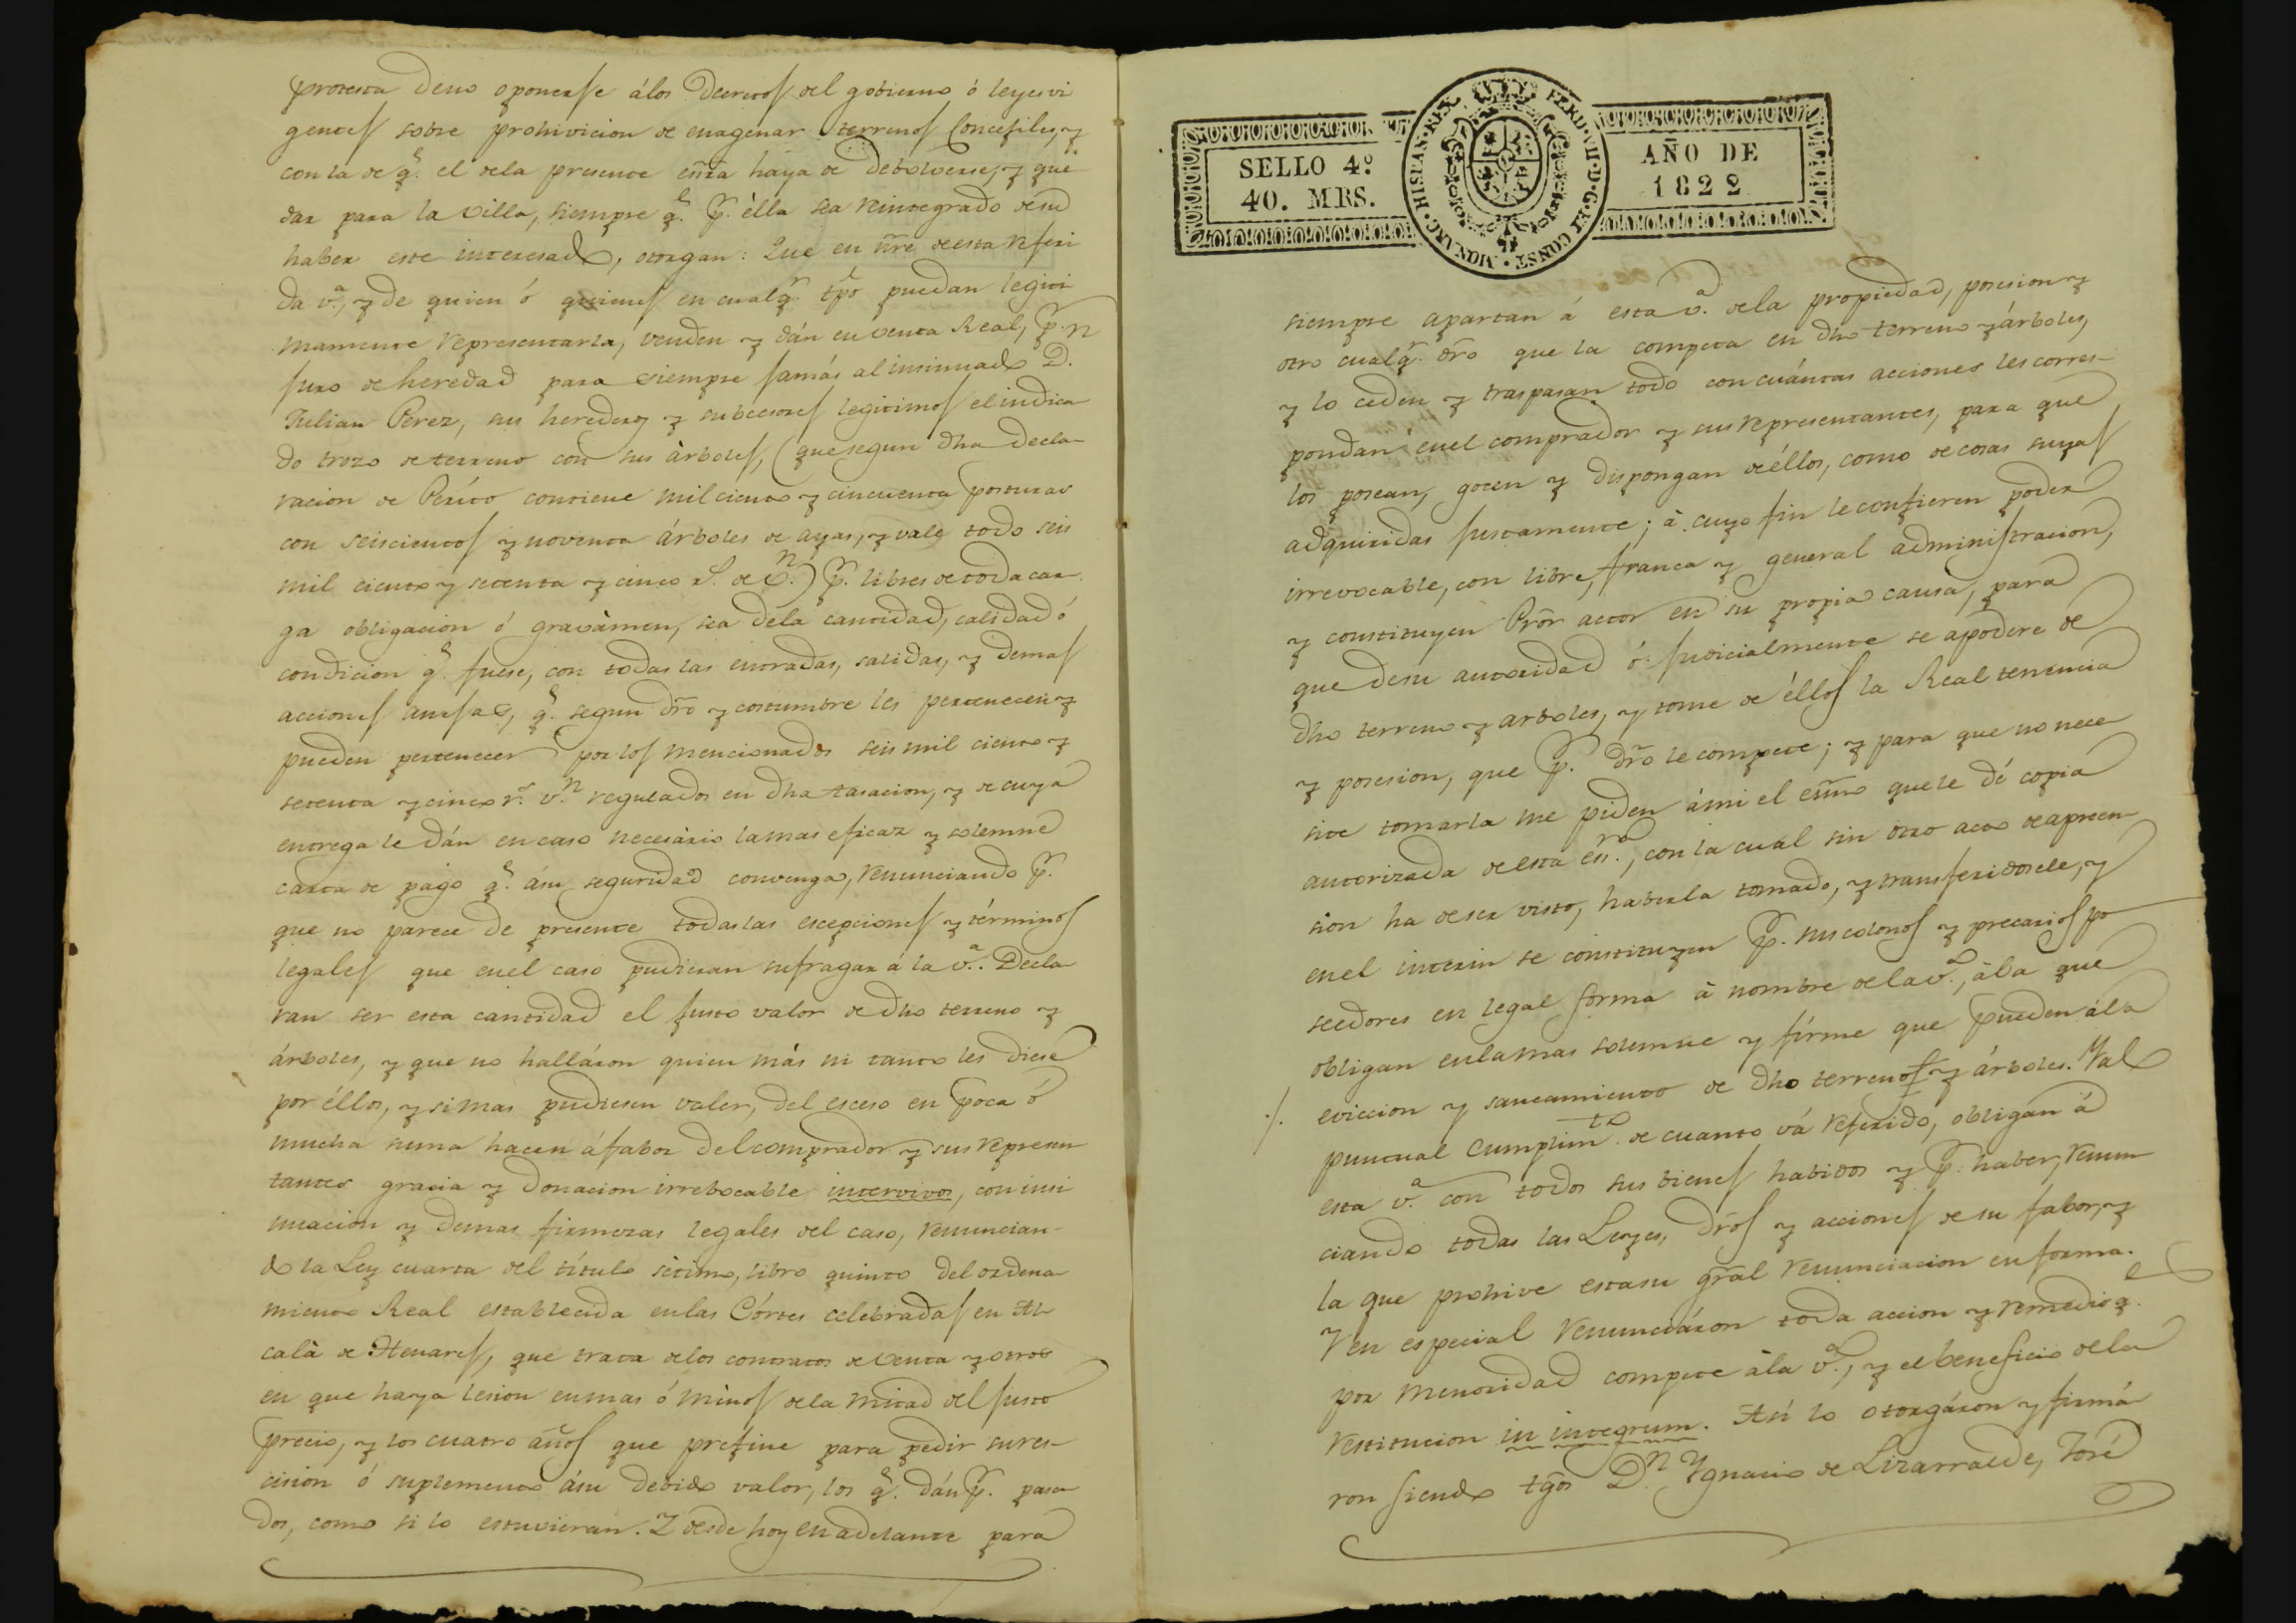 protesta deno oponerse álos Decretos del gobierno ó leyes vi
gentes sobre prohivicion de enagenar terrenos Concejiles, y
con la de q.e el dela presente enña haya de debolverse, y que
dar para la villa, siempre q.e p.r élla sea reintegrado desu
haber este interesado, otorgan: Que en nre de esta referi
da v.a, y de quien ó quienes en cualq.r tpō puedan legiti
mamente representarla, venden y dán en venta Real, p.r
juro de heredad para siempre jamás al insinuado D.
Julian Perez, sus herederos y subcesores legitimos el indica
do trozo de terreno con sus árboles, (que segun dha decla-
racion de Períto contiene mil ciento y cincuenta posturas
con seiscientos y noventa árboles de ayas, y vale todo seis
mil ciento y setenta y cinco r.s de v.n) p.r libres de toda car
ga obligacion ó gravàmen, sea dela cantidad, calidad ó
condicion q.e fuese, con todas las entradas, salidas, y demas
acciones anejas, q.e segun dro y costumbre les pertenecen y
pueden pertenecer por los mencionados seis mil ciento y
setenta y cinco r.s v.n regulados en dha tasacion, y de cuya
entrega le dán en caso necesário la mas eficaz y solemne
carta de pago q.e ásu seguridad convenga, renunciando p.r
que no parece de presente todas las escepciones y términos
legales que en el caso pudieran sufragar á la v.a. Decla
ran ser esta cantidad el justo valor de dho terreno y
árboles, y que no halláron quien más ni tanto les diese
por éllos, y si mas pudiesen valer, del esceso en poca ó
mucha suma hacen á fabor del comprador y sus represen
tantes gracia y donacion irrebocable intervivos, con insi
nuacion y demas firmezas legales del caso, renuncian-
do la Ley cuarta del título sétimo, libro quinto del ordena
miento Real establecida en las Córtes celebradas en Al
calà de Henares, que trata delos contratos de venta y otros
en que haya lesion en mas ó ménos dela mitad del justo
precio, y los cuatro años que prefine para pedir su res-
cision ó suplemento ásu debido valor, los q.e dán p.r pasa
dos, como si lo estuvieran. Y desde hoy en adelante para
SELLO 4º
40. MRS.
FERD. VII. D. G. ET CONST. MONARC. HISPAN. REX
AÑO DE
1822
siempre apartan á esta v.a dela propiedad, posesion y
otro cualq.r dro que la competa en dho terreno y árboles,
y lo ceden y traspasan todo con cuántas acciones les corres-
pondan en el comprador y sus representantes, para que
los posean, gocen y dispongan de éllos, como de cosas suyas
adquiridas justamente; à cuyo fin le confieren poder
irrevocable, con libre, franca y general administracion,
y constituyen Prōr actor en su propia causa, para
que desu autoridad ó judicialmente se apodere de
dho terreno y arboles, y tome de éllos la Real tenencia
y posesion, que p.r dro le compete; y para que no nece
site tomarla me piden ámi el enño que le dé copia
autorizada de esta es.ra, con la cual sin otro acto de apreen
sion ha de ser visto, haberla tomado, y transferidosele, y
en el interin se constituyen p.r sus colonos y precarios po
seedores en legal forma à nombre dela v.a, àla que
obligan en la mas solemne y fírme que pueden ála
./. eviccion y saneamiento de dho terreno y árboles. Y al
puntual cumplim.to de cuanto vá referido, obligan á
esta v.a con todos sus bienes habidos y p.r haber, renun
ciando todas las Leyes, dros y acciones de su fabor, y
la que prohive esta su grāl renunciacion en forma.
Y en especial renunciáron toda accion y remedio q.e
por menoridad compete àla v.a, y el beneficio dela
restitucion in integrum. Así lo otorgáron y firmá
ron siendo tgos D.n Ygnacio de Lizarralde, José